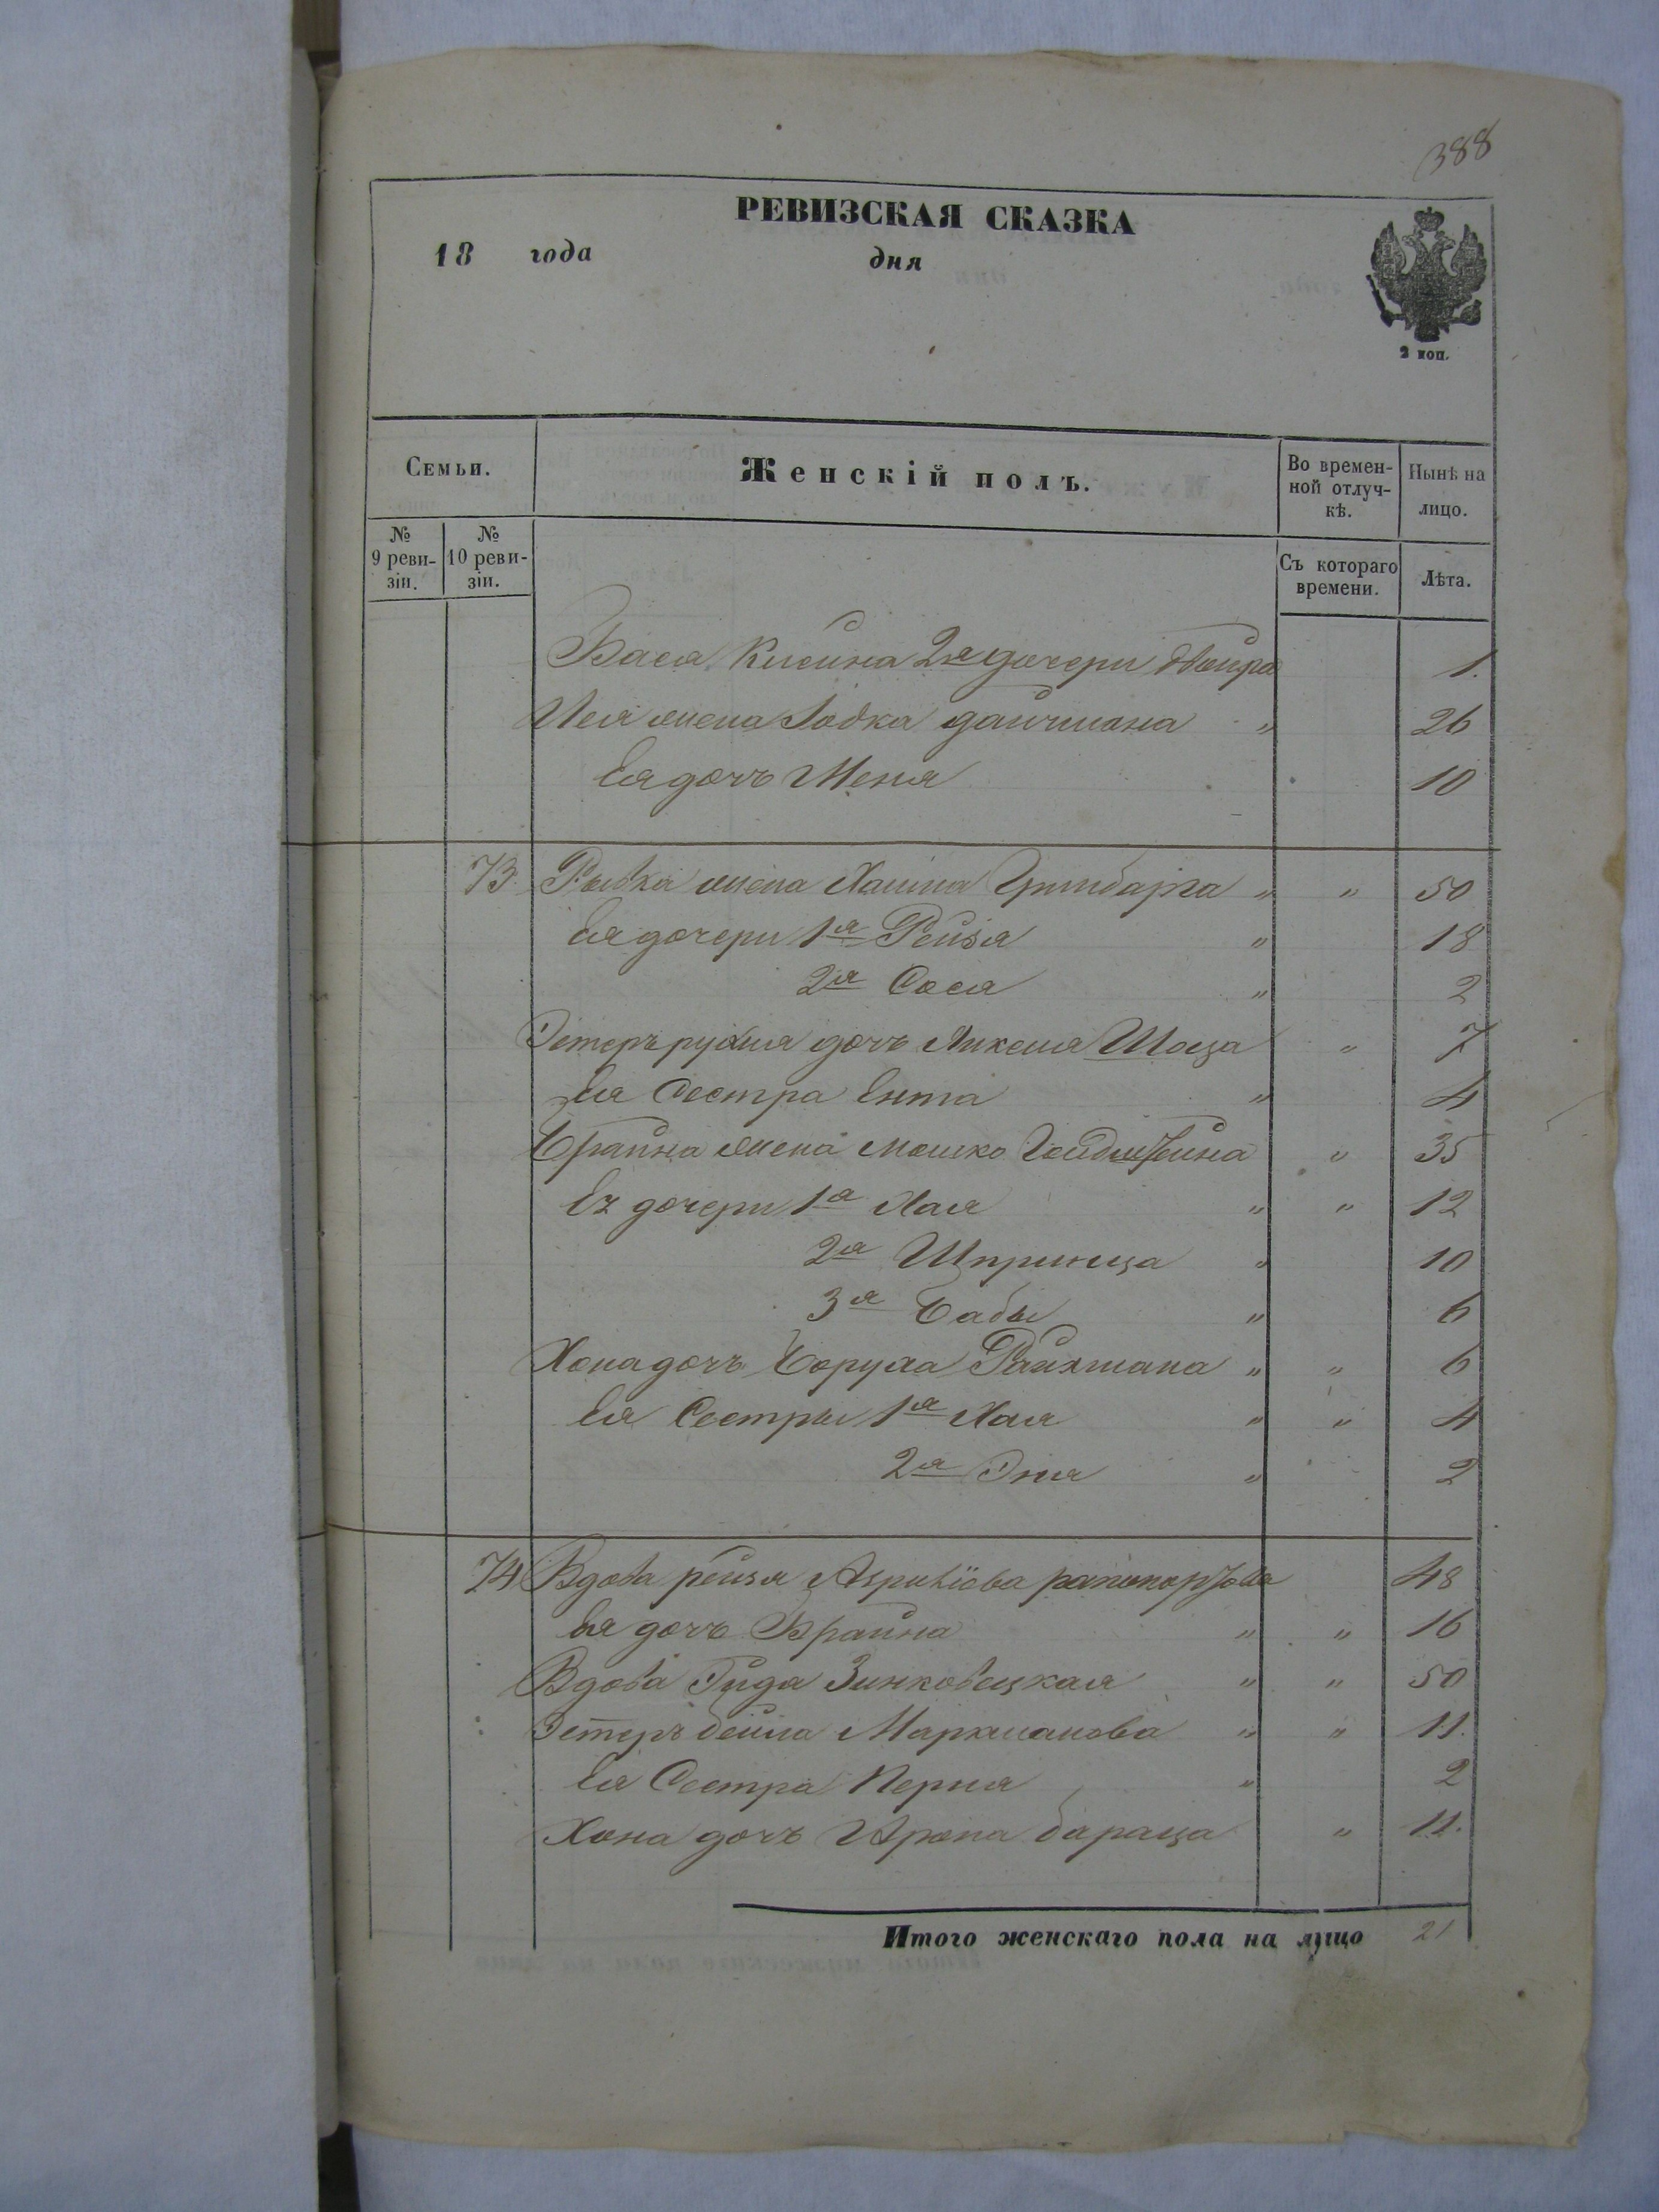 388
РЕВИЗСКАЯ СКАЗКА
18 года дня
2 коп.
Семьи. Женскій полъ. Во времен- Нынѣ на
ной отлуч- лицо.
кѣ.
№ №
9 реви- 10 реви- Съ котораго Лѣта.
зіи. зіи. времени.
Бася 2я дочери Двойра 1.
жена дайчмана " 26
Ея дочь Женя 10
73 Рывка жена Хаима Гринбарга " " 50
Ея дочери 1я Рейзя " 18
2я Сося " 2
Эстеръ рухля дочь Янкеля Шаца " 7
Ея Сестра Ента " 4
Брайна жена Мошко " 35
Ея дочери 1я Хая " " 12
2я Шпринца " 10
3я Бабы " 6
Хона дочь Боруха Райхмана " " 6
Ея Сестры 1я Хая " " 4
2я Эня " 2
74 Вдова рейзя рапопортова 48
Ея дочь Брайна " " 16
Вдова Гида Зинковецкая " " 50
Эстеръ бейла Маркманова " " 11.
Ея Сестра Перля " 2
Хона дочь бараца " 11.
Итого женскаго пола на лицо 21